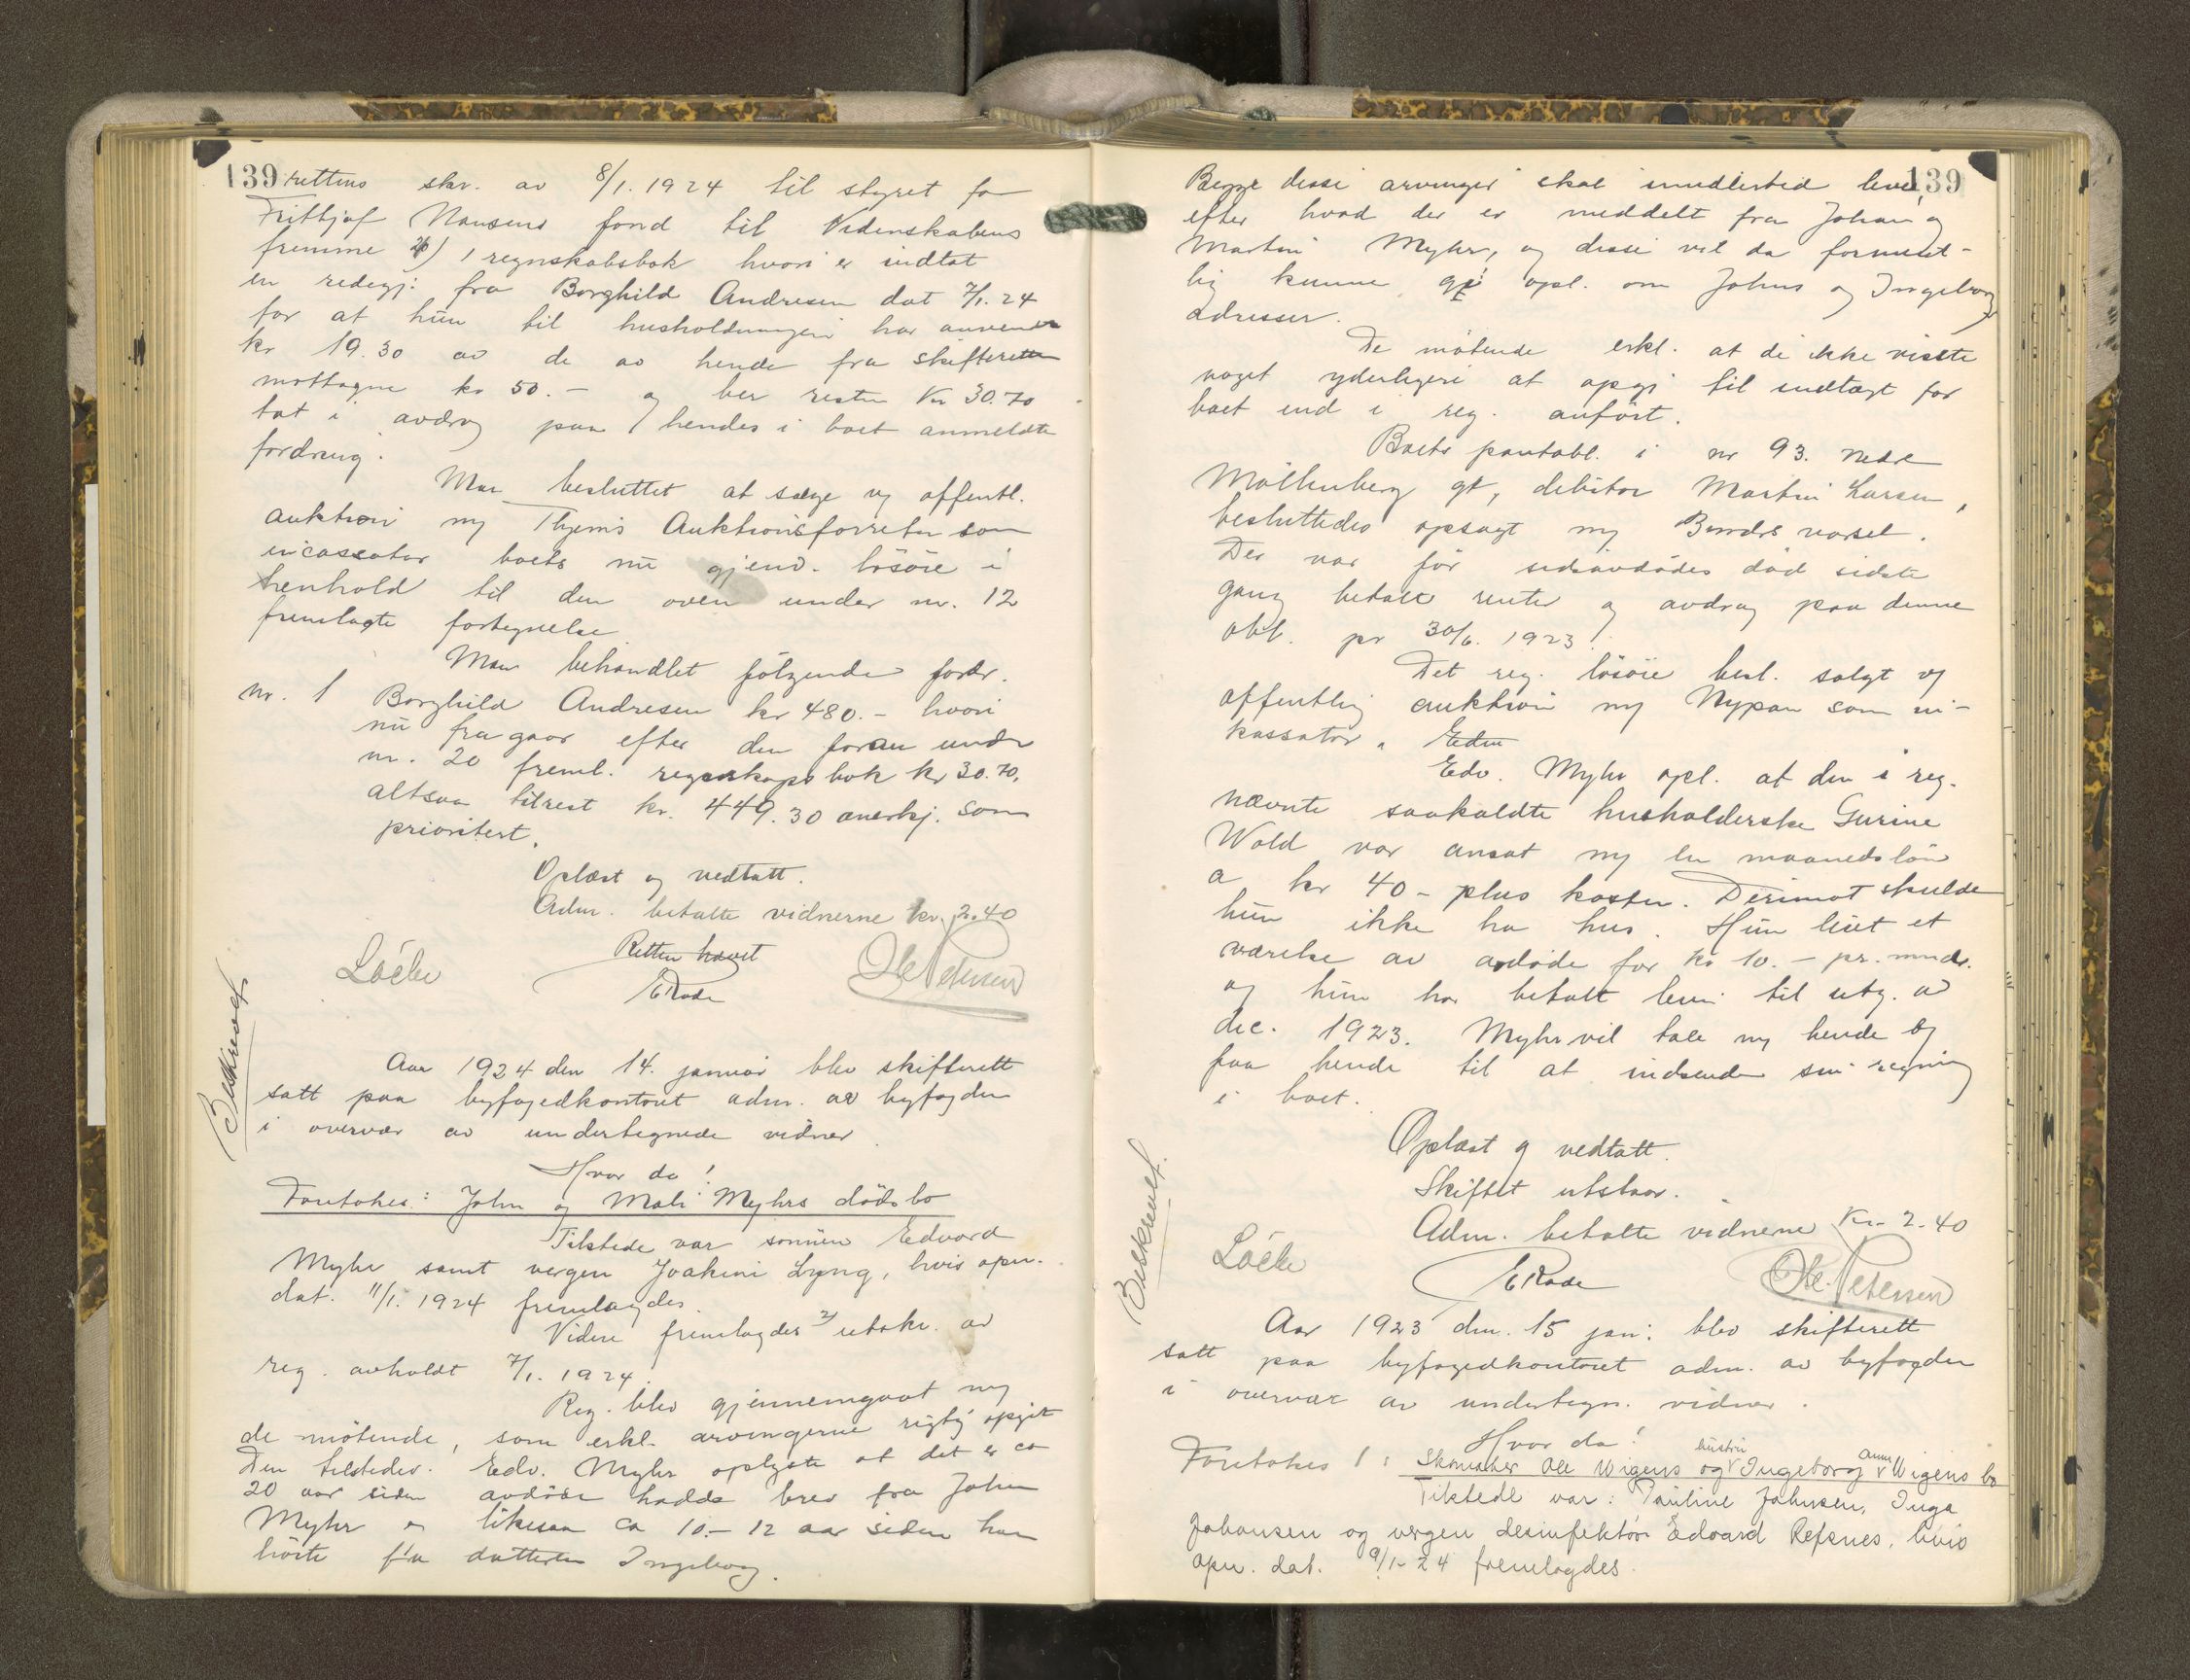 139 rettens skr. av 8/1. 1924 til styret for
Frithjof Nansens fond til Videnskabens
fremme 20) 1 regnskabsbok hvori er indtat
en redegj. fra Borghild Andresen dat 7/1. 24
for at hun til husholdningen har anvendt
kr 19.30 av de av hende fra skifteretten
mottagne kr 50.- og ber resten Kr 30.70
tat i avdrag paa hendes i boet anmeldte
fordring.
Man besluttet at sælge v/ offentl.
auktion m/ Thyem's Auktionsforretn som
incassator boets nu gjenv. løsøre i
henhold til den oven under nr. 12
fremlagte fortegnelse
Man behandlet følgende fordr.
nr. 1 Borghild Andresen kr 480.- hvori
nu fragaar efter den foran under
nr. 20 freml. regnskaps bok kr 30.70,
altsaa tilrest kr. 449.30 anerkj. som
prioritert.
Oplæst og vedtatt.
Adm. betalte vidnerne kr. 2.40
Retten hævet
Löche ERode Ole Petersen
Beskrevet
Aar 1924 den 14. januar blev skifterett
satt paa byfogedkontoret adm. av byfogden
i overvær av undertegnede vidner
Hvor da!
Foretokes: John og Mali Myhrs dødsbo
Tilstede var sønnen Edvard
Myhr samt vergen Joakim Lyng, hvis opn.
dat. 11/1. 1924 fremlagdes.
Videre fremlagdes 2) utskr. av
reg. avholdt 7/1. 1924.
Reg. blev gjennemgaat m/
de møtende, som erkl. arvingerne rigtig opgit
Den tilstedev. Edv. Myhr oplyste at det er ca
20 aar siden avdøde hadde brev fra John
Myhr og likesaa ca 10.- 12 aar siden han
hørte fra datteren Ingeborg.
139
Begge disse arvinger skal imidlertid leve,
efter hvad der er meddelt fra Johan og
Martin Myhr, og disse vil da forment-
lig kunne gi opl. om Johns og Ingeborg
adresser.
De møtende erkl. at de ikke visste
noget yderligere at opgi til indtægt for
boet end i reg. anført.
Boets pantobl. i nr 93. nedre
Møllenberg gt, debitor Martin Larsen,
besluttedes opsagt m/ 3 mdrs varsel.
Der var før sidstavdødes død sidste
gang betalt renter og avdrag paa denne
obl. pr 30/6. 1923.
Det reg. løsøre besl. solgt v/
offentlig auktion m/ Nypan som in-
kassator. Edm
Edv. Myhr opl. at den i reg.
nævnte saakaldte husholderske Gurine
Wold var ansat m/ en maanedsløn
a kr 40 - plus kosten. Derimot skulde
hun ikke ha hus. Hun leiet et
værelse av avdøde for kr 10.- pr. mndr.
og hun har betalt leien til utg. av
dec. 1923. Myhr vil tale m/ hende og
faa hende til at indsende sin regning
i boet.
Oplæst og vedtatt.
Skiftet utstaar.
Adm. betalte vidnerne Kr. 2.40
Löche ERode Ole Petersen
Beskrevet.
Aar 1923 den. 15 jan. blev skifterett
satt paa byfogedkontoret adm. av byfogden
i overvær av undertegn. vidner.
Hvor da!
Foretokes 1: Skomaker Ole Wigens og hustru Ingeborg Anna Wigens bo
Tilstede var: Pauline Johnsen, Inga
Johansen og vergen desinfektör Edvard Refsnes, hvis
opn. dat. 9/1- 24 fremlagdes.